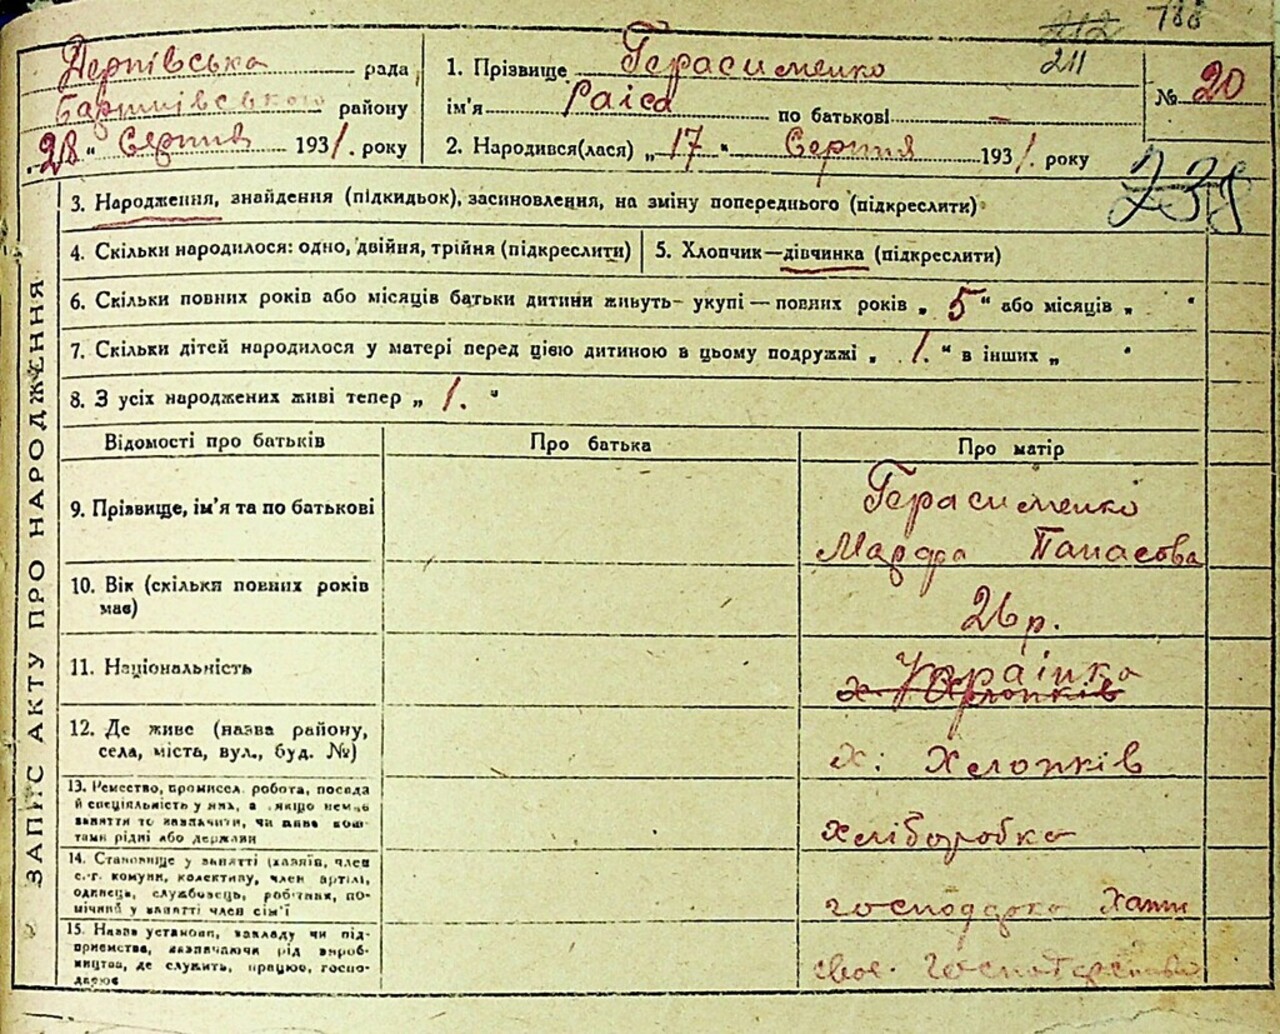 212 788
211
Дернівська рада
Баришівського району
„28“ Серпня 1931. року
1. Прізвище Герасименко
ім'я Раїса по батькові —
2. Народився(лася) „17“ Серпня 1931. року
№ 20
238
ЗАПИС АКТУ ПРО НАРОДЖЕННЯ
3. Народження, знайдення (підкидьок), засиновлення, на зміну попереднього (підкреслити)
4. Скільки народилося: одно, двійня, трійня (підкреслити)
5. Хлопчик—дівчинка (підкреслити)
6. Скільки повних років або місяців батьки дитини живуть- укупі — повних років „ 5 “ або місяців „ “
7. Скільки дітей народилося у матері перед цією дитиною в цьому подружжі „ 1. “ в інших „ “
8. З усіх народжених живі тепер „ 1. “
Відомості про батьків
Про батька
Про матір
9. Прізвище, ім'я та по батькові
Герасименко
Марфа Панасова
10. Вік (скільки повних років
має)
26 р.
11. Національність
Українка
х. Хлопків
12. Де живе (назва району,
села, міста, вул., буд. №)
х: Хлопків
13. Ремество, промисел, робота, посада
й спеціяльність у них, а якщо немає
заняття то зазначити, чи живе кош-
тами рідні або держави
хліборобка
14. Становище у занятті (хазяїн, член
с.-г. комуни, колективу, член артілі,
одинець, службовець, робітник, по-
мічний у занятті член сім'ї
господарка хати
15. Назва установи, закладу чи під-
приємства, зазначаючи рід вироб-
ництва, де служить, працює, госпо-
дарює
своє господарство